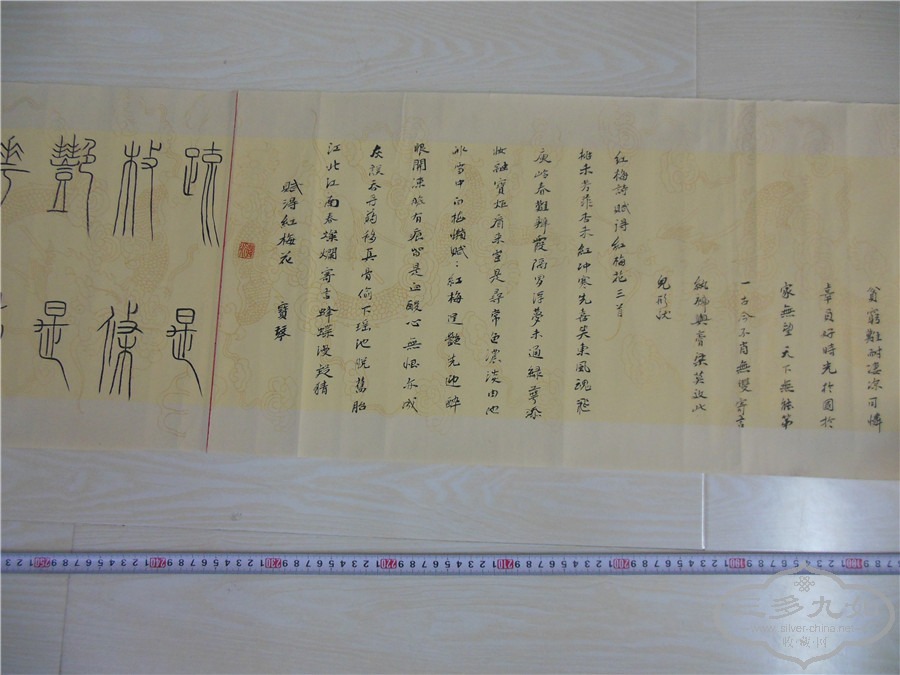 貧窮難耐淒涼可憐
辜負好時光於國於
家無望天下無能第
一古今不肖無雙寄言
紈絝與膏梁莫效此
兒形狀
紅梅詩賦得紅梅花三首
桃未芳菲杏未紅冲寒先喜笑東風魂飛
庾嶺春難辨霞隔羅浮夢未通綠萼添
妝融寶炬看来豈是尋常色濃淡由他
冰雪中白梅懶賦〻紅梅逞艷先迎醉
眼開凍臉有痕皆是血酸心無恨亦成
灰誤吞丹藥移真骨偷下瑤池脫舊胎
江北江南春燦爛寄言蜂蝶漫疑猜
賦得紅梅花 寶琴
疏是
枝條
豔是
花
三多九如
www.silver-china.net
收藏网